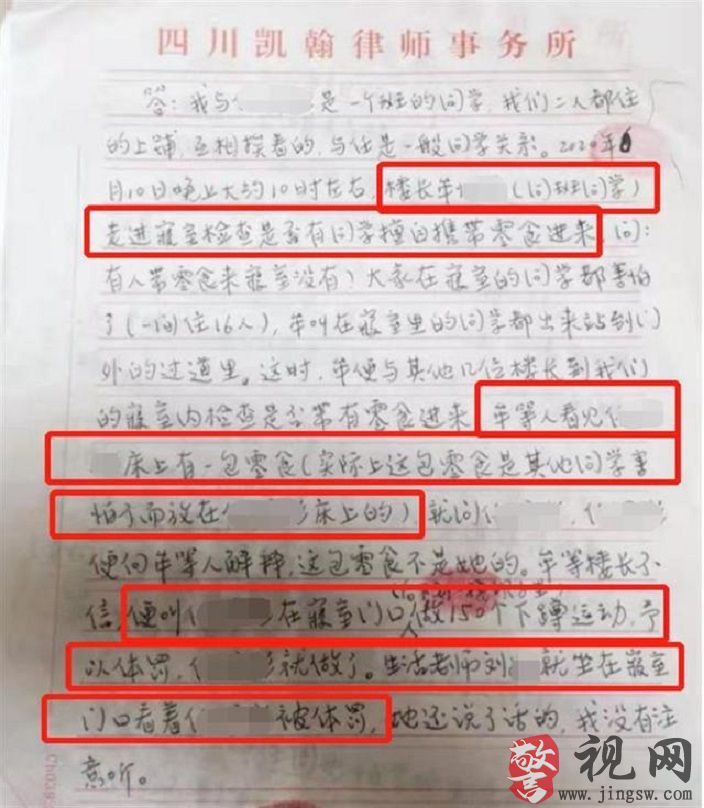 四川凯翰律师事务所
答：我与亻 是一个班的同学，我们二人都住
的上铺，互相挨着的，与她是一般同学关系。2020年6
月10日晚上大约10时左右，楼长牟 （同班同学）
走进寝室检查是否有同学擅自携带零食进来，问：
有人带零食来寝室没有？大家在寝室的同学都害怕
了（一间住16人），牟叫在寝室里的同学都出来站到门
外的过道里。这时，牟便与其他几位楼长到我们
的寝室内检查是否带有零食进来，牟等人看见亻
床上有一包零食（实际上这包零食是其他同学害
怕了而放在亻 床上的），就问亻 ，亻
便向牟等人解释，这包零食不是她的。牟等楼长不
信，便叫亻 在寝室门口做150个下蹲运动，予
以体罚，亻 就做了。生活老师刘 就坐在寝室
门口看着亻 被体罚，她还说了话的，我没有注
意听。
警视网
www.jingsw.com